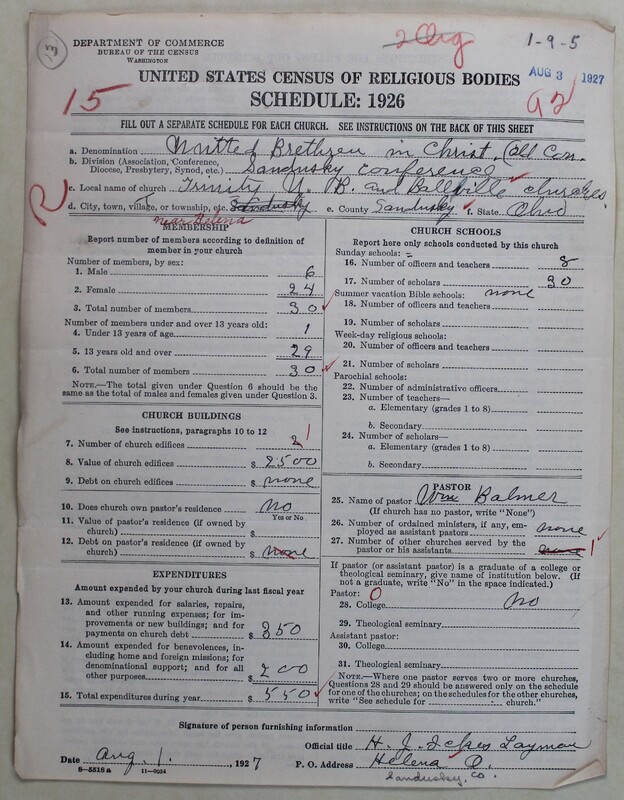 13
2 Org
1-9-5
DEPARTMENT OF COMMERCE
BUREAU OF THE CENSUS
WASHINGTON
AUG 3 1927
UNITED STATES CENSUS OF RELIGIOUS BODIES
15
SCHEDULE: 1926
92
FILL OUT A SEPARATE SCHEDULE FOR EACH CHURCH. SEE INSTRUCTIONS ON THE BACK OF THIS SHEET
a. Denomination United Brethren in Christ. (Old Con.
b. Division (Association, Conference, Diocese, Presbytery, Synod, etc.) Sandusky conference
c. Local name of church Trinity U. B. and Ballville churches
d. City, town, village, or township, etc. Sandusky e. County Sandusky f. State Ohio
near Helena
MEMBERSHIP
Report number of members according to definition of member in your church
Number of members, by sex:
1. Male 6
2. Female 24
3. Total number of members 30
Number of members under and over 13 years old:
4. Under 13 years of age 1
5. 13 years old and over 29
6. Total number of members 30
NOTE.—The total given under Question 6 should be the same as the total of males and females given under Question 3.
CHURCH BUILDINGS
See instructions, paragraphs 10 to 12
7. Number of church edifices 2 1
8. Value of church edifices $ 2500
9. Debt on church edifices $ none
10. Does church own pastor's residence No
Yes or No
11. Value of pastor's residence (if owned by church) $
12. Debt on pastor's residence (if owned by church) $ none
EXPENDITURES
Amount expended by your church during last fiscal year
13. Amount expended for salaries, repairs, and other running expenses; for improvements or new buildings; and for payments on church debt $ 350
14. Amount expended for benevolences, including home and foreign missions; for denominational support; and for all other purposes $ 200
15. Total expenditures during year $ 550
CHURCH SCHOOLS
Report here only schools conducted by this church
Sunday schools:
16. Number of officers and teachers 8
17. Number of scholars 30
Summer vacation Bible schools: none
18. Number of officers and teachers
19. Number of scholars
Week-day religious schools:
20. Number of officers and teachers
21. Number of scholars
Parochial schools:
22. Number of administrative officers
23. Number of teachers—
a. Elementary (grades 1 to 8)
b. Secondary
24. Number of scholars—
a. Elementary (grades 1 to 8)
b. Secondary
PASTOR
25. Name of pastor Wm Balmer
(If church has no pastor, write "None")
26. Number of ordained ministers, if any, employed as assistant pastors none
27. Number of other churches served by the pastor or his assistants none 1
If pastor (or assistant pastor) is a graduate of a college or theological seminary, give name of institution below. (If not a graduate, write "No" in the space indicated.)
Pastor: 0
28. College No
29. Theological seminary
Assistant pastor:
30. College
31. Theological seminary
NOTE.—Where one pastor serves two or more churches, Questions 28 and 29 should be answered only on the schedule for one of the churches; on the schedules for the other churches, write "See schedule for church."
Signature of person furnishing information
Official title H. J. Layman
Date Aug. 1. , 1927 P. O. Address Helena O.
Sandusky, Co.
8—5518 a 11—9034